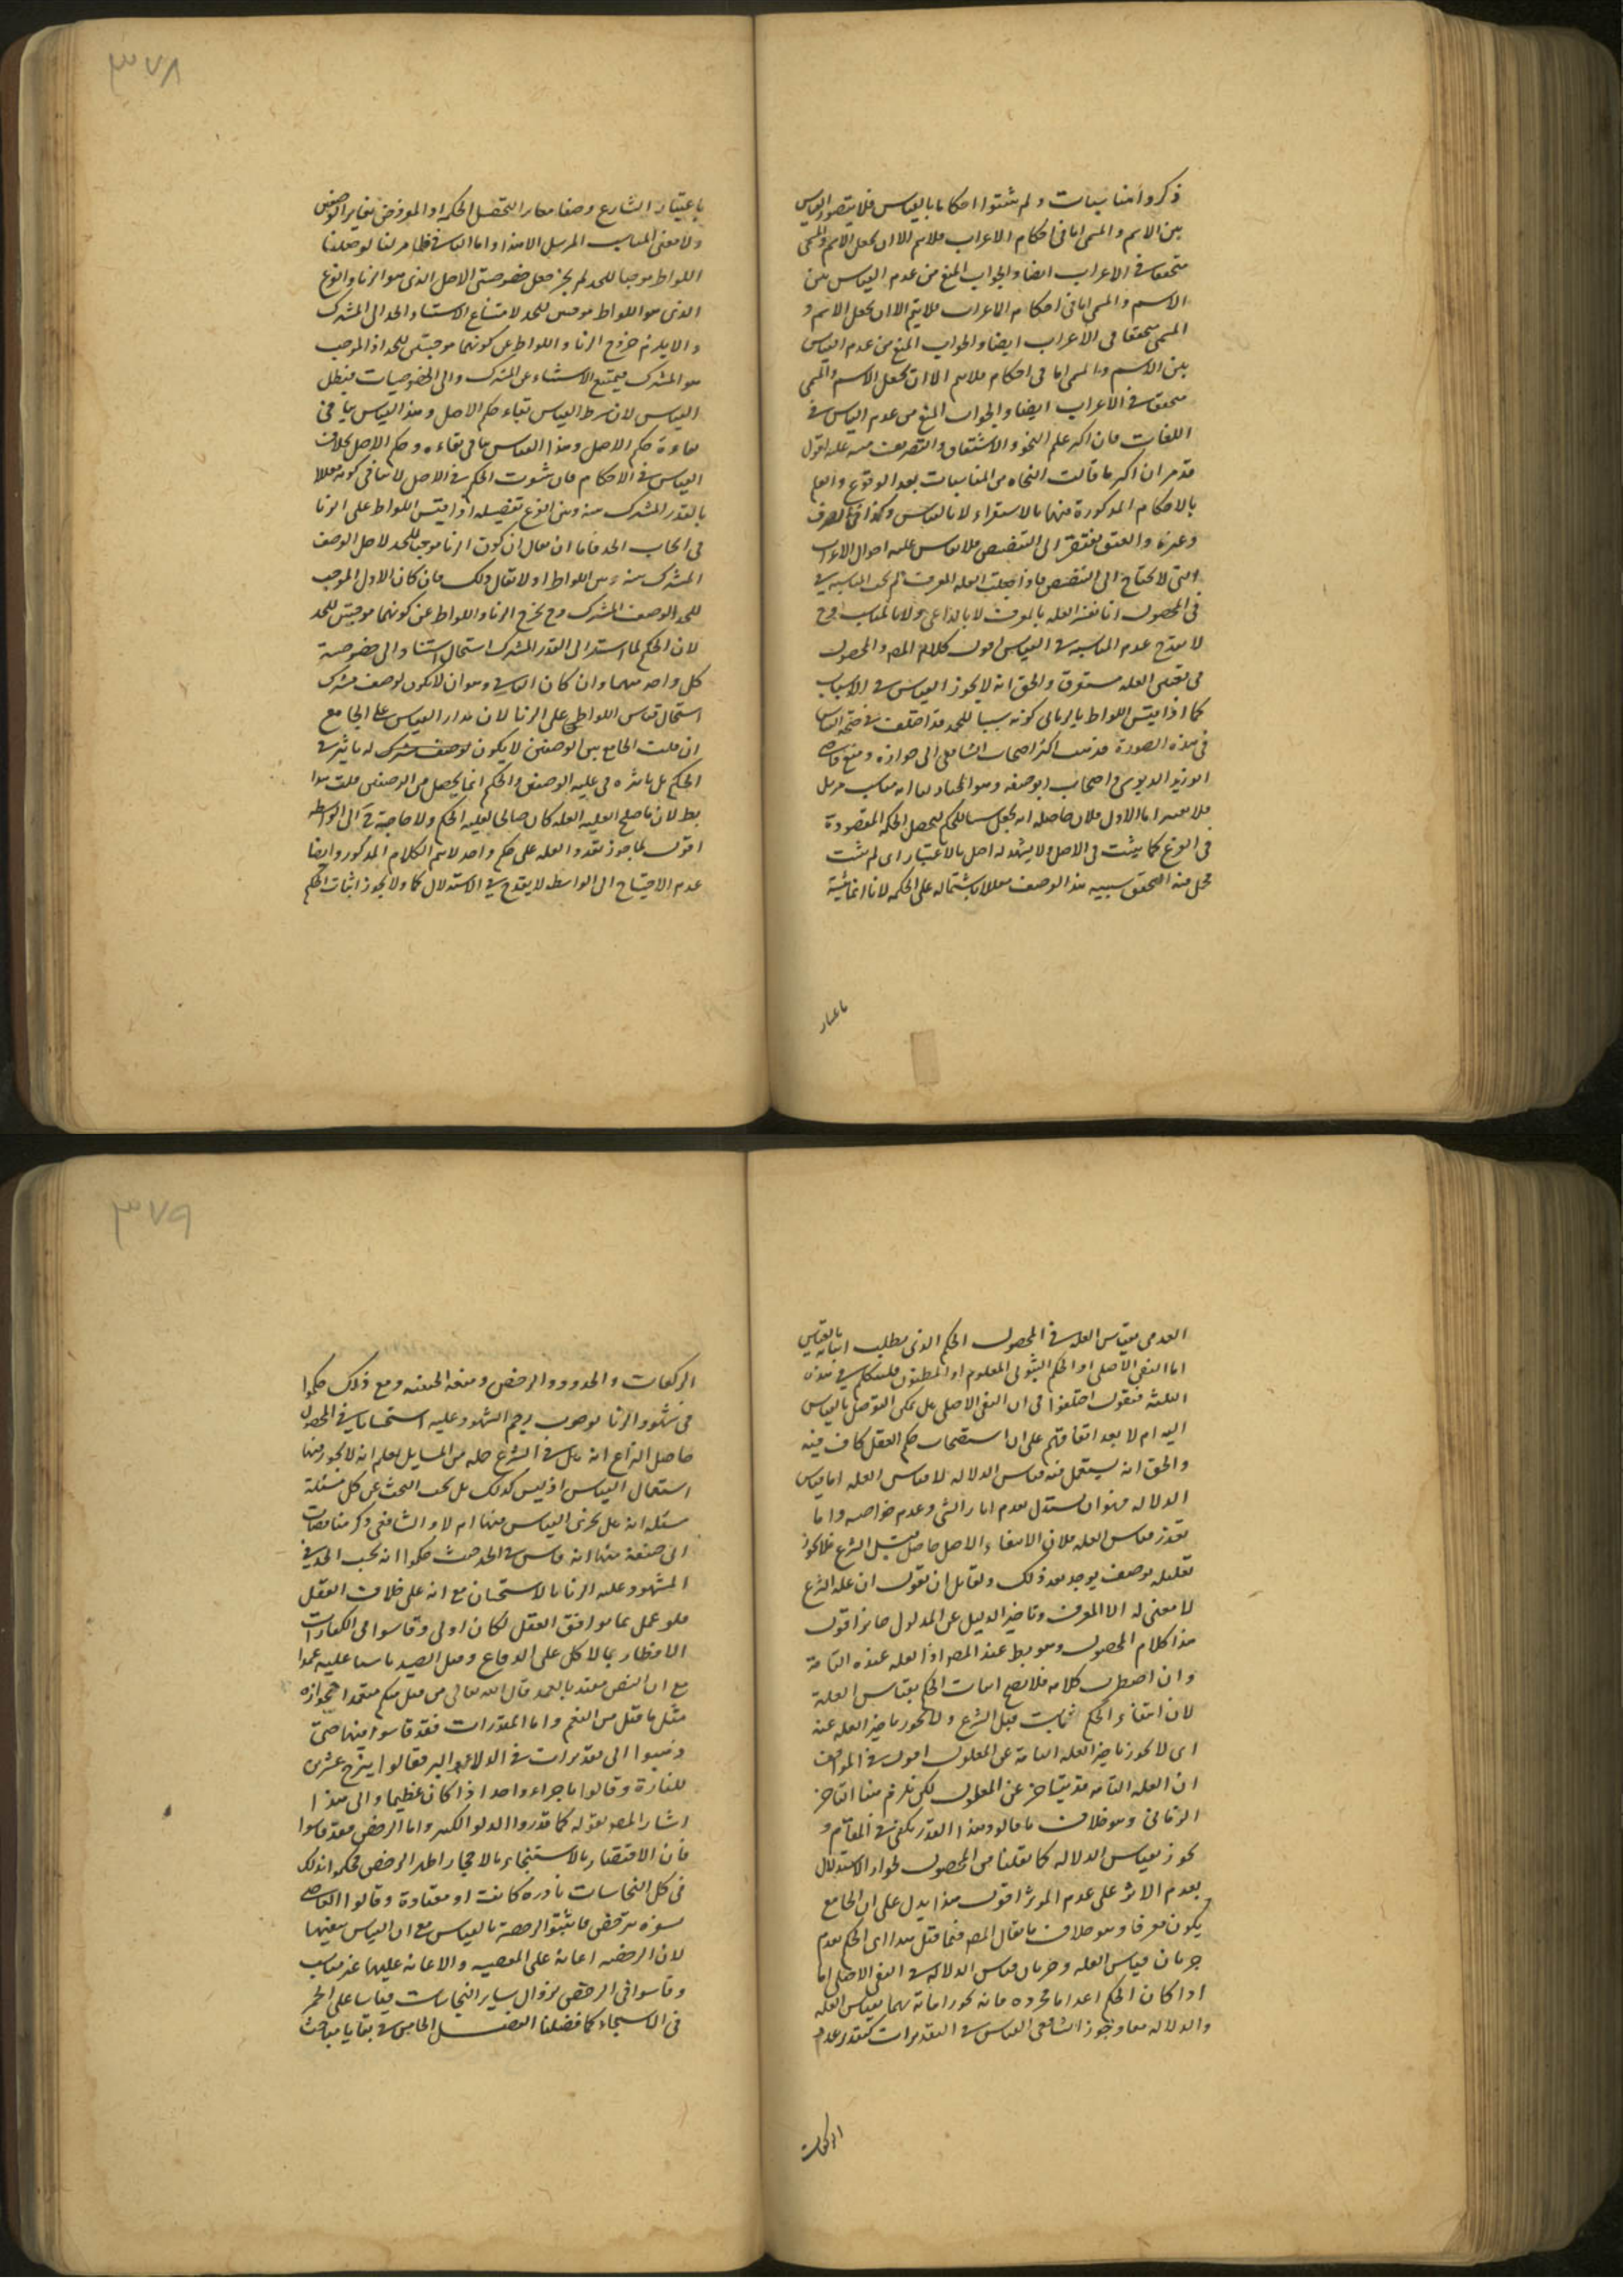 ٣٧٨
ذكروا مناسبات و لم يثبتوا احكاما بالقياس فلا يتصور القياس
بين الاسم والمسمى اما في احكام الاعراب فلا يتم الا ان يجعل الاسم والمسمى
متحققا في الاعراب ايضا والجواب المنع من عدم القياس بين
الاسم والمسمى اما في احكام الاعراب فلا يتم الا ان يجعل الاسم و
المسمى متحققا في الاعراب ايضا والجواب المنع من عدم القياس
بين الاسم والمسمى اما في احكام فلا يتم الا ان يجعل الاسم والمسمى
متحقق في الاعراب ايضا والجواب المنع من عدم القياس في
اللغات فان اكثر علم النحو والاشتقاق والتصريف مبنى عليه اقول
قد مر ان اكثر ما قالت النحاة من المناسبات بعد الوقوع والعلم
بالاحكام المذكورة فيها بالاستقراء لا بالقياس وكذا في الصرف
وغيره والعتق يفتقر الى التنصيص فلا يقاس عليه احوال الاعراب
التي لا يحتاج الى التنصيص
في المحصول انا نفسر العلة بالمعرف لا بالداعي ولا بالمناسب وح
لا يقدح عدم المناسبة في القياس اقول كلام المص والمحصول
في تفسير العلة والحق انه لا يجوز القياس في الاسباب
كما اذا قيس اللواط بالزنا في كونه سببا للحد فقد اختلف في صحة القياس
في هذه الصورة فذهب اكثر اصحاب الشافعي الى جوازه ومنع قاضي
ابو زيد الدبوسي و اصحاب ابو حنيفة وهو المختار لنا انه مناسب مرسل
فلا يعتبر اما الاول فلان حاصله انه يجعل سببا للحكم لتحصل الحكمة المقصودة
في الفرع كما يثبت في الاصل ولا يشهد له اصل بالاعتبار اى لم يثبت
محل فيه التحقق سببيه هذا الوصف معللا باشتماله على الحكمة لانا انما نثبته
باعتبار
باعتبار الشارع وصفا مغايرا لتحصل الحكمة اذ المفروض تغاير الوصفين
ولا معنى للمناسب المرسل الا هذا واما الثاني فظاهر لنا لو جعلنا
اللواط موجبا للحد لم يجز جعل خصوصيتي الاصل الذي هو الزنا والفرع
الذي هو اللواط موجبين للحد لامتناع الاستناد الحد الى المشترك
والا يلزم خروج الزنا واللواط عن كونهما موجبين للحد اذ الموجب
هو المشترك فيمتنع الاستثناء عن المشترك والى الخصوصيات فيبطل
القياس لان شرط القياس بقاء حكم الاصل وهذا القياس ينافي
بقاء حكم الاصل وهذا القياس ينافي بقاءه و حكم الاصل بخلاف
القياس في الاحكام فان ثبوت الحكم في الاصل لا ينافي كونه معللا
بالقدر المشترك بينه وبين الفرع تفصيله اذا قيس اللواط على الزنا
في ايجاب الحد فاما ان يقال ان كون الزنا موجبا للحد لاجل الوصف
المشترك بينه وبين اللواط او لا يقال ذلك فان كان الاول الموجب
للحد الوصف المشترك وح يخرج الزنا واللواط عن كونهما موجبين للحد
لان الحكم لما استند الى القدر المشترك استحال استناده الى خصوصية
كل واحد منهما وان كان الثاني وهو ان لا يكون لوصف مشترك
استحال قياس اللواط على الزنا لان مدار القياس على الجامع
ان قلت الجامع بين الوصفين لا يكون لوصف مشترك له تاثير في
الحكم بل تاثيره في عليه الوصفين والحكم انما يحصل من الوصفين قلت هذا
بط لان ما صلح لعلية العلة كان صالحا لعلية الحكم ولا حاجة ح الى الواسطه
اقول لما جوز تعدد العلة على حكم واحد لا يتم الكلام المذكور وايضا
عدم الاحتياج الى الواسطه لا يقدح في الاستدلال كما ولا يجوز اثبات الحكم
٣٧٩
العدمي بقياس العلة في المحصول الحكم الذي يطلب اثباته بالقياس
اما النفي الاصلي او الحكم الثبوتي المعلوم او المظنون فلنتكلم في هذه
الثلثه فنقول اختلفوا في ان النفي الاصلي هل يمكن التوصل بالقياس
اليه ام لا بعد اتفاقهم على ان استصحاب حكم العقل كاف فيه
والحق انه يستعمل فيه قياس الدلالة لا قياس العلة اما قياس
الدلالة فهو ان يستدل بعدم اثار الشى وعدم خواصه واما
تعذر قياس العلة فلان الانتفاء الاصل حاصل قبل الشرع فلا يجوز
تعليله بوصف يوجد بعد ذلك ولقايل ان يقول ان علة الشرع
لا معنى له الا المعرف وتاخير الدليل عن المدلول جايز اقول
هذا كلام المحصول وهو بط عند المص اذ العلة عنده التامة
وان اضطرب كلامه فلا يصح اثبات الحكم بقياس العلة
لان انتفاء الحكم ثابت قبل الشرع ولا يجوز تاخير العلة عنه
اى لا يجوز تاخير العلة التامة عن المعلول اقول في المواقف
ان العلة التامه قد يتاخر عن المعلول لكن يلزم منا التاخر
الزماني وهو خلاف ما قالوه وهذا القدر يكفي في المقام و
يجوز بقياس الدلالة كما نقلنا من المحصول لجواز الاستدلال
بعدم الاثر على عدم المؤثر اقول هذا يدل على ان الجامع
يكون معرفا وهو خلاف ما يقال المص فيما قبل هذا اى الحكم بعدم
جريان قياس العلة وجريان قياس الدلالة في النفي الاصلي اما
اذا كان الحكم اعداما مجرده فانه يجوز اثباته بهما بقياس العلة
والدلالة معا وجوز الشافعي القياس في التقديرات كتقدير عدم
الركعات
الركعات والحدود والرخص ومنعه الحنفيه ومع ذلك حكموا
في شهود الزنا بوجوب رجم المشهود عليه استحسانا في المحصول
حاصل النزاع انه هل في الشرع جملة من المسايل يعلم انه لا يجوز فيها
استعمال القياس او ليس كذلك بل يجب البحث عن كل مسئلة
مسئلة انه هل يجري القياس فيها ام لا والشافعي ذكر مناقضات
ابي حنيفة منها انه قياس في الحد حيث حكموا انه يجب الحد في
المشهود عليه الزنا بالاستحسان مع انه على خلاف العقل
فلو عمل بما يوافق العقل لكان اولى وقاسوا في الكفارات
الافطار بالاكل على الوقاع وقتل الصيد ناسيا عليه عمدا
مع ان النص مقيد بالعمد قال الله تعالى من قتله منكم متعمدا فجزاء
مثل ما قتل من النعم واما المقدرات فقد قاسوا فيها حتى
ذهبوا الى تقديرات في الدلاء والبئر فقالوا ينزح عشرين
للفارة وقالوا باجزاء واحد اذا كان عظيما والى هذا
اشار المص بقوله كما قدروا الدلو الكبير واما الرخص فقد قاسوا
فان الاقتصار بالاستنجاء بالاحجار اظهر الرخص فحكموا بذلك
في كل النجاسات نادرة كانت او معتادة وقالوا العاصي
بسفره يترخص فاثبتوا الرخصة بالقياس مع ان القياس ينفيها
لان الرخصه اعانة على المعصيه والاعانه عليها غير مناسب
وقاسوا في الرخص بزوال ساير النجاسات قياسا على الحجر
في الاستنجاء كما فصلنا الفصل الخامس في بقايا مباحث